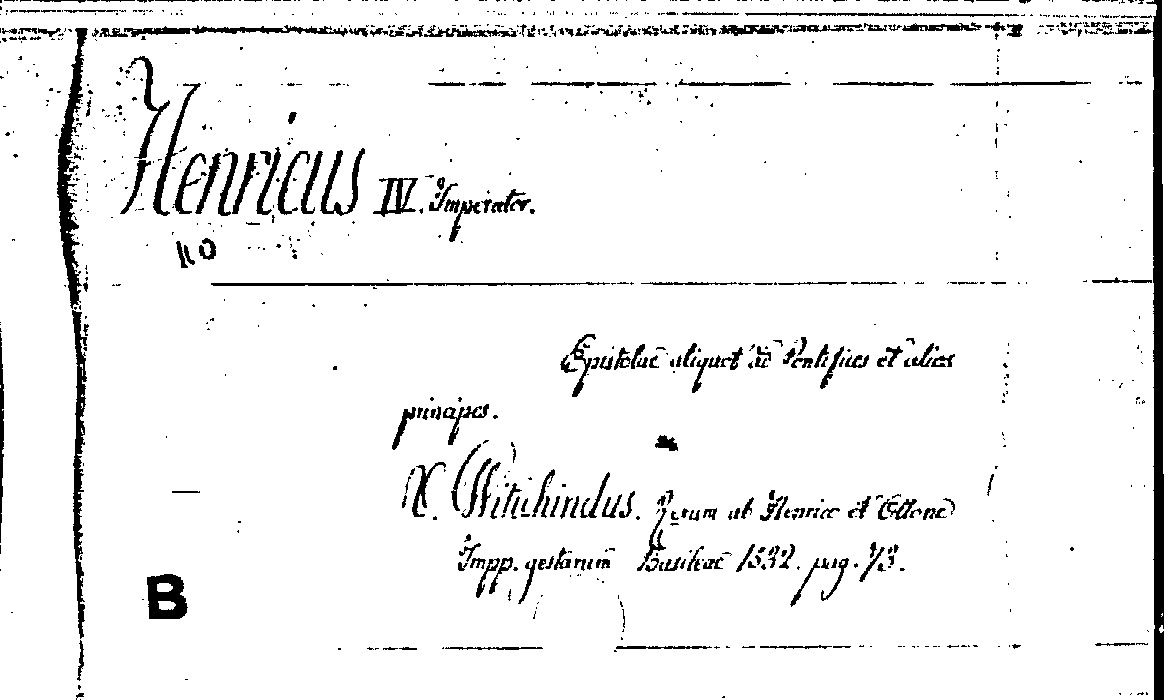 Henricus IV. Imperator.
110
Epistolae aliquot ad Pontifices et alios
principes.
V. Witichindus. Rerum ab Henrico et Ottone
Impp. gestarum Basileae 1532. pag. 73.
B